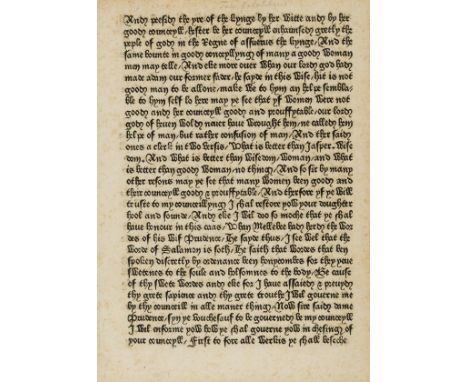 Andy presidy the yre of the kynge by her witte andy by her
goody counceyll, hester be her councepll enhaunsedy gretly the
peple of gody in the Regne of assuerus the kynge, And the
same bounte in goody councepllyngy of many a goody woman
may men telle, And eke more over whan our lordy gody hady
made adam our former fader, he sayde in this wise, hit is not
goody man to be allone, make we to hym an helpe sembla-
ble to hym self lo here may ye see that yf women were not
goody andy her councepll goody andy prouffytable, our lordy
gody of heuen woldy neuer haue wrought hem, ne calledy hem
helpe of man, but rather confusion of man, And ther saidy
ones a clerk in two versis, what is better than Jasper, Wise
dom, And what is better than wisedom, woman, And what
is better than goody woman no thing, And so sir by many
other resons may ye see that many women been goody andy
ther councepll goody & prouffytable, And therfore yf ye will
truste to my councepllyngy I shal restore yow your doughter
hool and sounde, Andy elis I wil doo so moche that ye shal
haue honour in this caas, whan Mellebe hady herdy the wor
des of his wif Prudence, he sayde thus, I see wel that the
worde of Salamon is soth, he saith that wordes that ben
spoken discretly by ordenance been honycombes for they yeue
swetenes to the soule andy holsomnes to the body, Be cause
of thy swete wordes andy eke for I haue assaiedy & preuydy
thy grete sapience andy thy grete trouthe I wil gouerne me
by thy councepll in alle maner thing, Now sire saidy dame
Prudence, syn ye vouchesauf to be gouernedy be my councepll
I wil informe yow how ye shal gouerne yow in chesing of
your councepll, First to fore alle werkis ye shall beseche